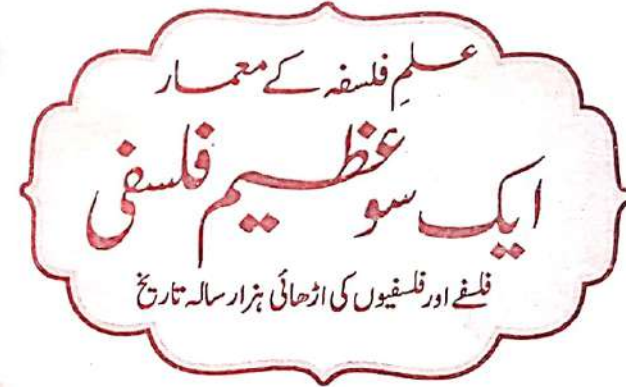 علمِ فلسفہ کے معمار
ایک سو عظیم فلسفی
فلسفے اور فلسفیوں کی اڑھائی ہزار سالہ تاریخ